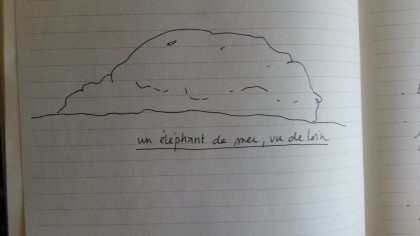 un éléphant de mer, vu de loin